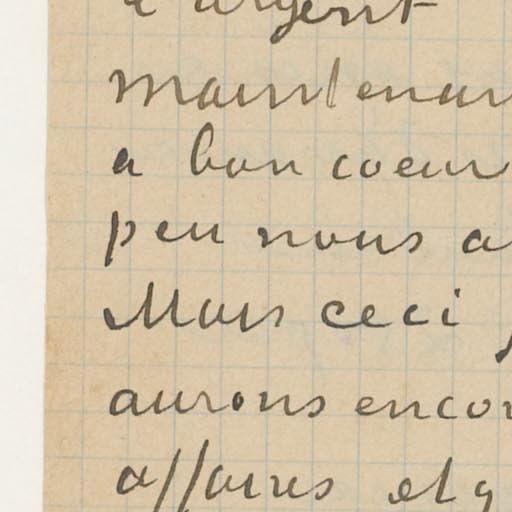 l'argent
maintenan
a bon coeur
peu nous a
Mais ceci
aurons encor
affaires et q